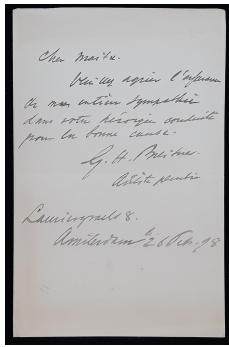 Cher Maître.
Veuillez agréer l'expression
de mon entière sympathie
dans votre héroique conduite
pour la bonne cause.
G. H. Breitner
Artiste peintre
Lauriergracht 8.
Amsterdam 26 Febr. 98